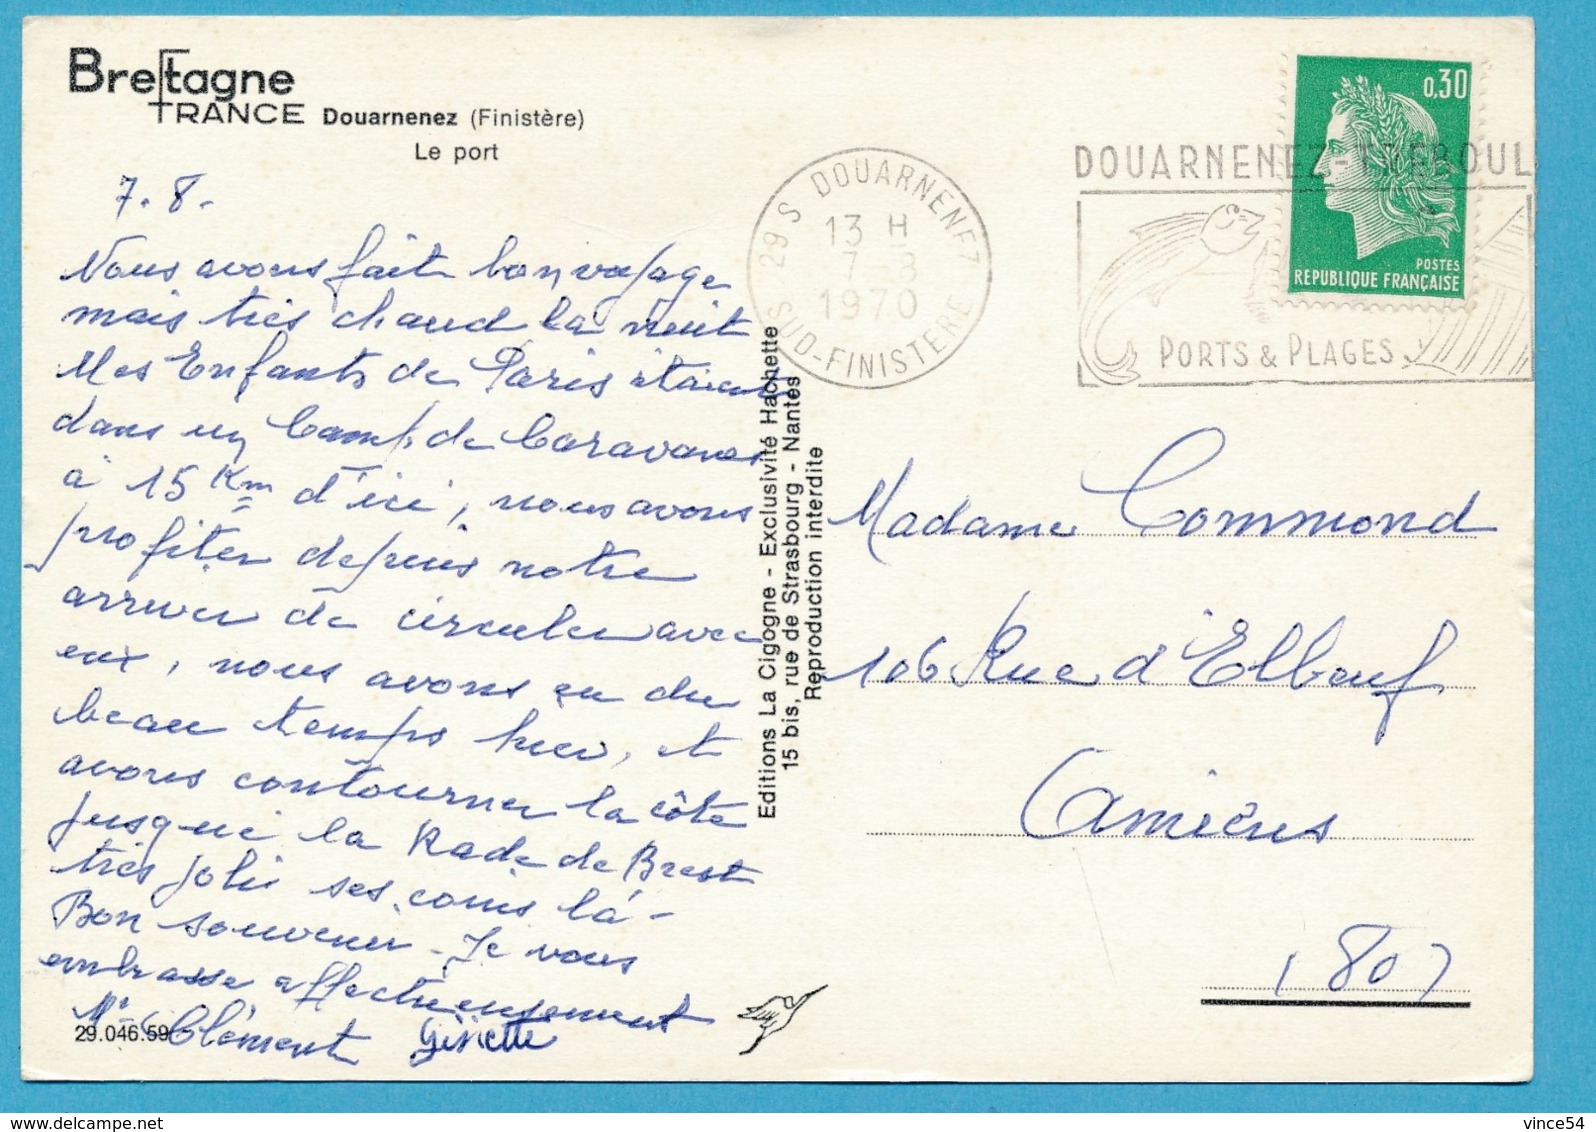 Bretagne
FRANCE Douarnenez (Finistère)
Le port
7.8.
Nous avons fait bon voyage
mais très chaud la nuit
Mes Enfants de Paris étaient
dans un Camp de Caravanes
à 15 Km d'ici, nous avons
profiter depuis notre
arriver de circuler avec
eux, nous avons eu du
beau temps hier, et
avons contourner la côte
jusqu'à la Rade de Brest
très jolis ses coins là-
Bon souvenir - Je vous
embrasse affectueusement
Clément Ginette
29.046.59
Editions La Cigogne - Exclusivité Hachette
15 bis, rue de Strasbourg - Nantes
Reproduction interdite
29 S DOUARNENEZ
13 H
7-8
1970
SUD-FINISTERE
DOUARNENEZ-TREBOUL
PORTS & PLAGES
0,30
POSTES
REPUBLIQUE FRANÇAISE
Madame Commond
106 Rue d'Elbeuf
Amiens
(80)
www.delcampe.net
vince54